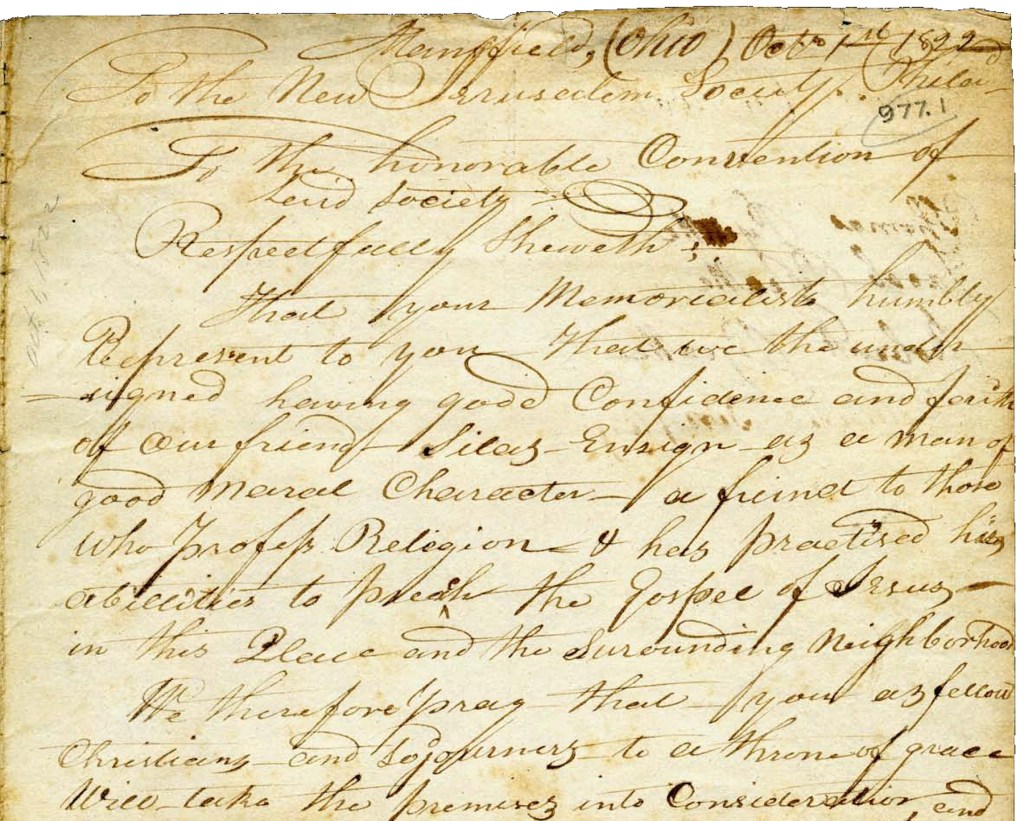 Mansfield, (Ohio) Octr 1st 1822
To the New Jerusalem Society. Philad
977.1
To the honorable Convention of
Said Society
Respectfully Sheweth;
That your Memorialists humbly
Represent to you That we the under
signed having good Confidence and faith
of our friend Silas Ensign as a man of
good Maral Character a friend to those
who profess Religion & has practised his
abillities to preach the Gospel of Jesus
in this Place and the Surounding Neighborhood
We therefore pray that you as fellow
Christians and Sojourners to a throne of grace
Will take the premises into Consideration, and
Oct. 1, 1822